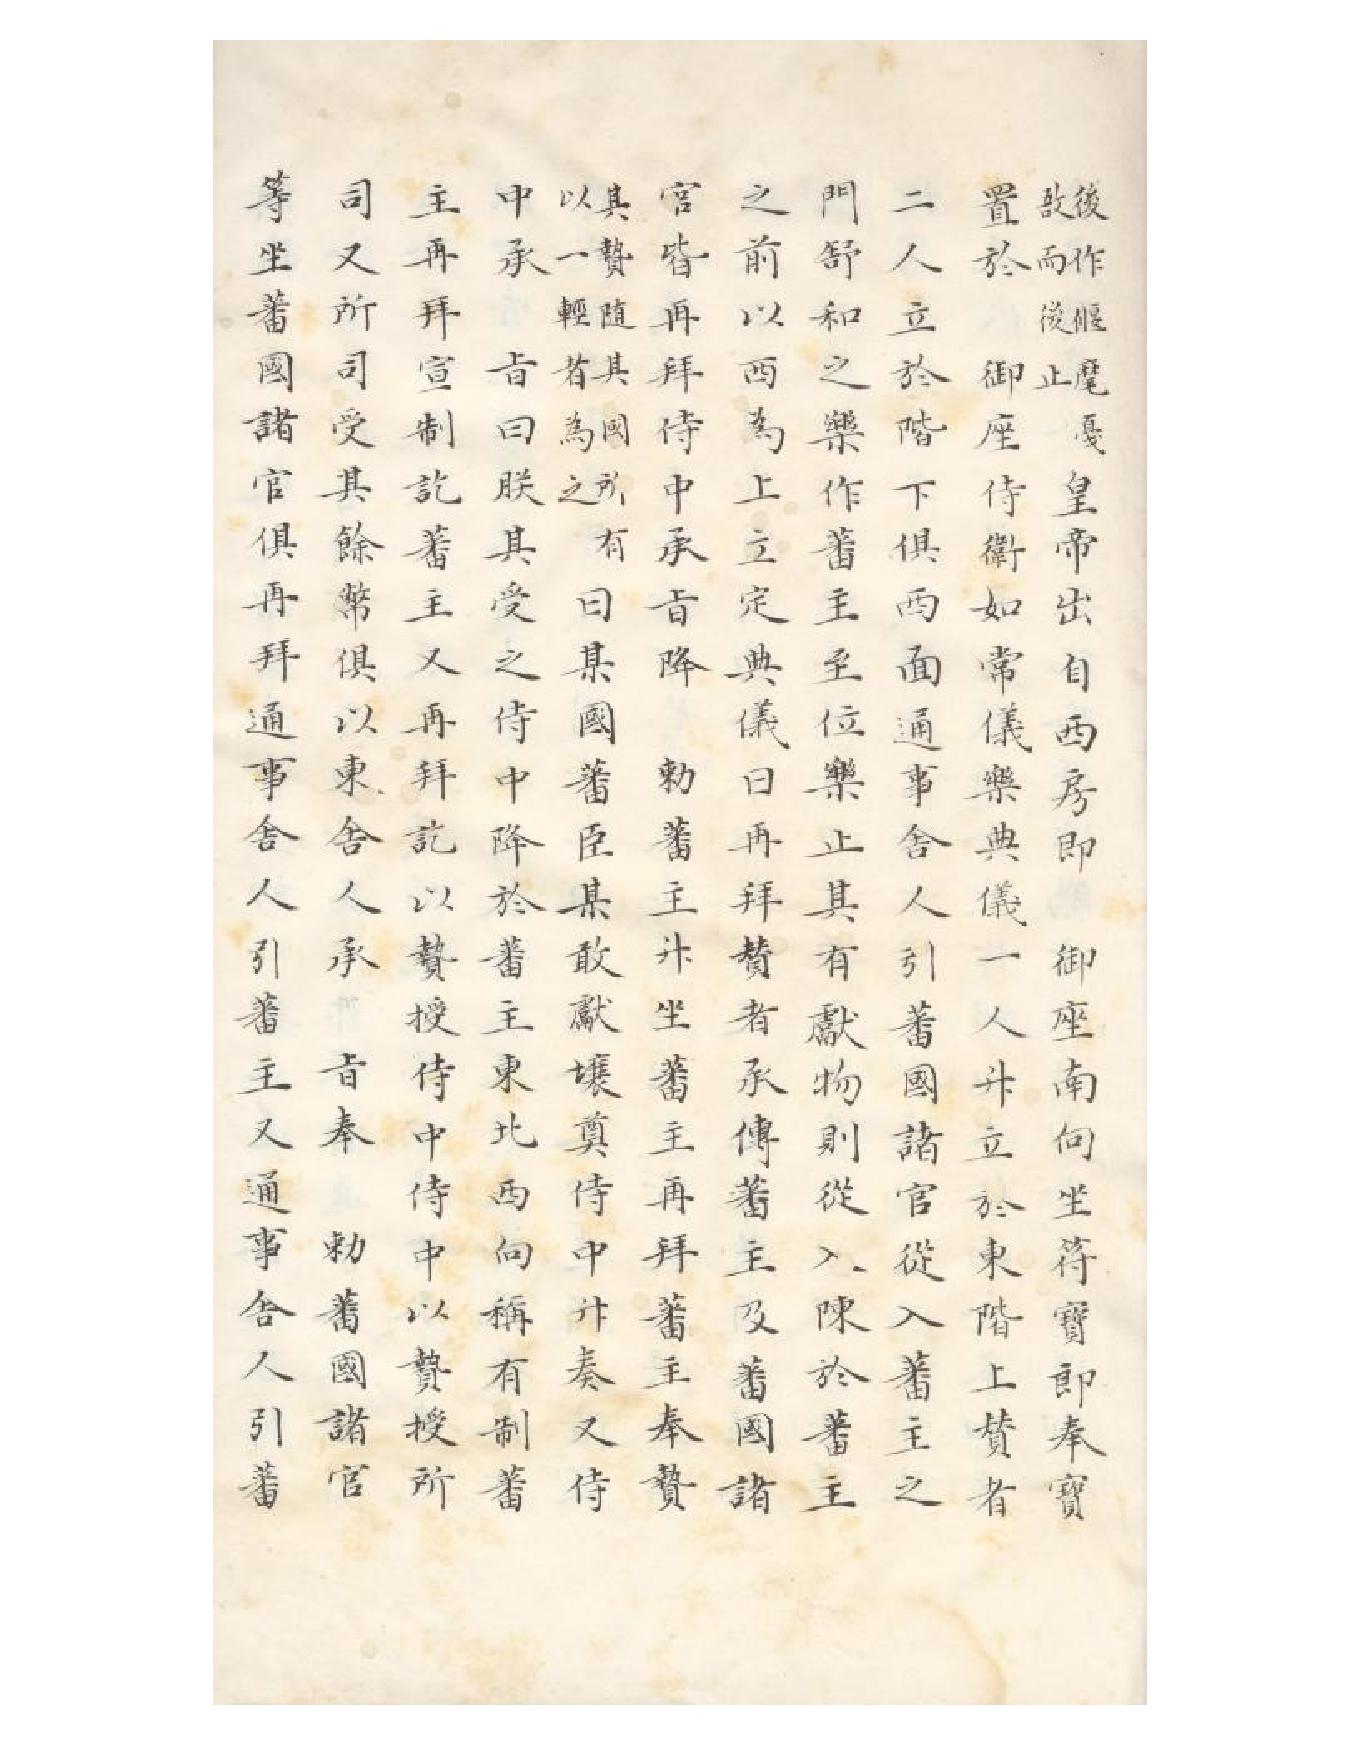 後作偃麾戞敔而後止皇帝出自西房即 御座南向坐符寶郎奉寶
置於 御座侍衛如常儀樂典儀一人升立於東階上贊者
二人立於階下俱西面通事舍人引蕃國諸官從入蕃主之
門舒和之樂作蕃主至位樂止其有獻物則從入陳於蕃主
之前以西為上立定典儀曰再拜贊者承傳蕃主及蕃國諸
官皆再拜侍中承旨降 勅蕃主升坐蕃主再拜蕃主奉贄
其贄随其國所有以一輕者為之曰某國蕃臣某敢獻壤奠侍中升奏又侍
中承 旨曰朕其受之侍中降於蕃主東北西向稱有制蕃
主再拜宣制訖蕃主又再拜訖以贄授侍中侍中以贄授所
司又所司受其餘幣俱以東舍人承 旨奉 勅蕃國諸官
等坐蕃國諸官俱再拜通事舍人引蕃主又通事舍人引蕃